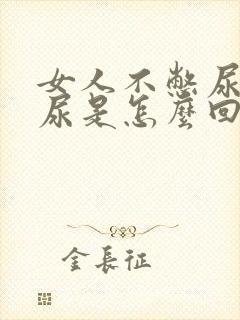 女人不憋尿
尿是怎麼回
金長征